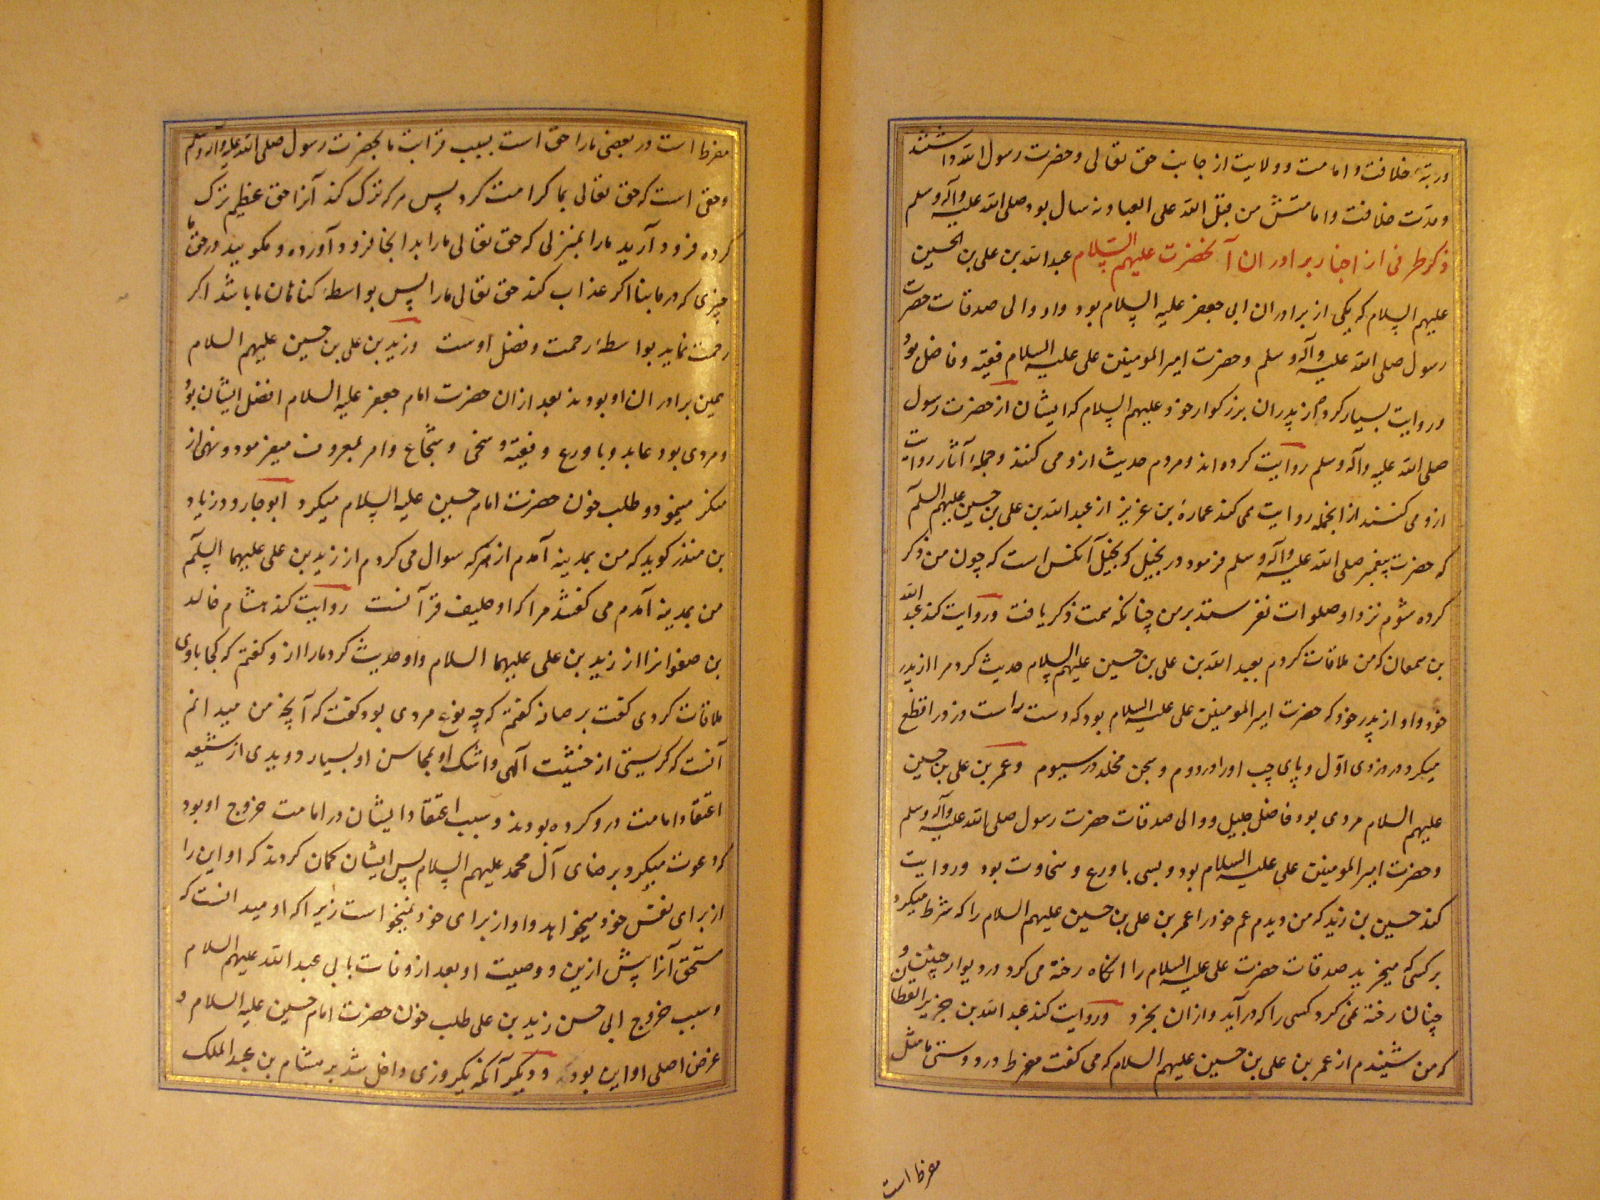 ورتبهٔ خلافت و امامت و ولایت از جانب حق تعالی و حضرت رسول الله داشتند
و مدت خلافت و امامتش من قبل الله علی العباد نه سال بود صلی الله علیه وآله وسلم
ذکر طرفی از اخبار برادران آنحضرت علیهم السلام عبدالله بن علی بن الحسین
علیهم السلام که یکی از برادران ابی جعفر علیه السلام بود و او والی صدقات حضرت
رسول صلی الله علیه وآله وسلم و حضرت امیرالمومنین علی علیه السلام فقیه و فاضل بود
و روایت بسیار کرد از پدران بزرگوار خود علیهم السلام که ایشان از حضرت رسول
صلی الله علیه وآله وسلم روایت کرده اند و مردم حدیث ازو می کنند و جملهٔ آثار روایت
ازو می کنند از انجمله روایت می کند عمارة بن غزیز از عبدالله بن علی بن حسین علیهم السلم
که حضرت پیغمبر صلی الله علیه وآله وسلم فرمود در بخیل که بخیل آنکس است که چون من ذکر
کرده شوم نزد او صلوات نفرستد بر من چنانکه سمت ذکر یافت و روایت کند عبدالله
بن سمعان که من ملاقات کردم بعبدالله بن علی بن حسین علیهم السلام حدیث کرد مرا از پدر
خود و او از پدر خود که حضرت امیرالمومنین علی علیه السلام بود که دست راست دزد را قطع
میکرد در دزدی اول و پای چپ او را در دوم و سجن مخلد در سیوم و عمر بن علی بن حسین
علیهم السلام مردی بود فاضل جلیل و والی صدقات حضرت رسول صلی الله علیه وآله وسلم
و حضرت امیرالمومنین علی علیه السلام بود و بسی با ورع و سخاوت بود و روایت
کند حسین بن زید که من دیدم عم خود را عمر بن علی بن حسین علیهم السلام را که شرط میکرد
بر کسی که میخرید صدقات حضرت علی علیه السلام را انکاه رخنه می کرد در دیوار چنین و
چنان رخنه نمی کرد کسی را که درآید و ازان بخرد و روایت کند عبدالله بن جریر القطان
که من شنیدم از عمر بن علی بن حسین علیهم السلام که می گفت مفرط در دوستی ما مثل
مفرط است
مفرط است در بعضی ما را حق است بسبب قرابت ما بحضرت رسول صلی الله علیه وآله وسلم
و حقی است که حق تعالی بما کرامت کرد پس هر که ترک کند آنرا حق عظیم ترک
کرده فرود آرید ما را بمنزلی که حق تعالی ما را بدانجا فرود آورده و مگویید در حق ما
چیزی که در ما بنا اکر عذاب کند حق تعالی ما را پس بواسطهٔ کناهان ما باشد اکر
رحمت نماید بواسطهٔ رحمت و فضل اوست و زید بن علی بن حسین علیهم السلام
همین برادران او بودند بعد ازان حضرت امام جعفر علیه السلام افضل ایشان بود
و مردی بود عابد و با ورع و فقیه و سخی و شجاع و امر بمعروف میفرمود و نهی از
منکر مینمود و طلب خون حضرت امام حسین علیه السلام میکرد ابو جارود زیاد
بن منذر کوید که من بمدینه آمدم از هر که سوال می کردم از زید بن علی علیهما السلم
من بمدینه آمدم می کفتند مرا که او حلیف قرآنست روایت کند هشام خالد
بن صفوانرا از زید بن علی علیهما السلام و او حدیث کرد ما را از و کفتم که کجا با وی
ملاقات کردی کفت برصافه کفتم که چه نوع مردی بود کفت که آنچه من میدانم
آنست که کریستی از خشیت آلهی و اشک او بمحاسن او بسیار دویدی از شیعه
اعتقاد امامت در و کرده بودند و سبب اعتقاد ایشان در امامت خروج او بود
که دعوت میکرد برضای آل محمد علیهم السلام پس ایشان کمان کردند که او این را
از برای نفس خود میخواهد و او از برای خود نمیخواست زیرا که او میدانست که
مستحق آنرا پیش ازین و وصیت او بعد از وفات بابی عبدالله علیهم السلام
و سبب خروج ابی حسن زید بن علی طلب خون حضرت امام حسین علیه السلام و
غرض اصلی او این بود که و دیگر آنکه یکروزی داخل شد بر هشام بن عبدالملک